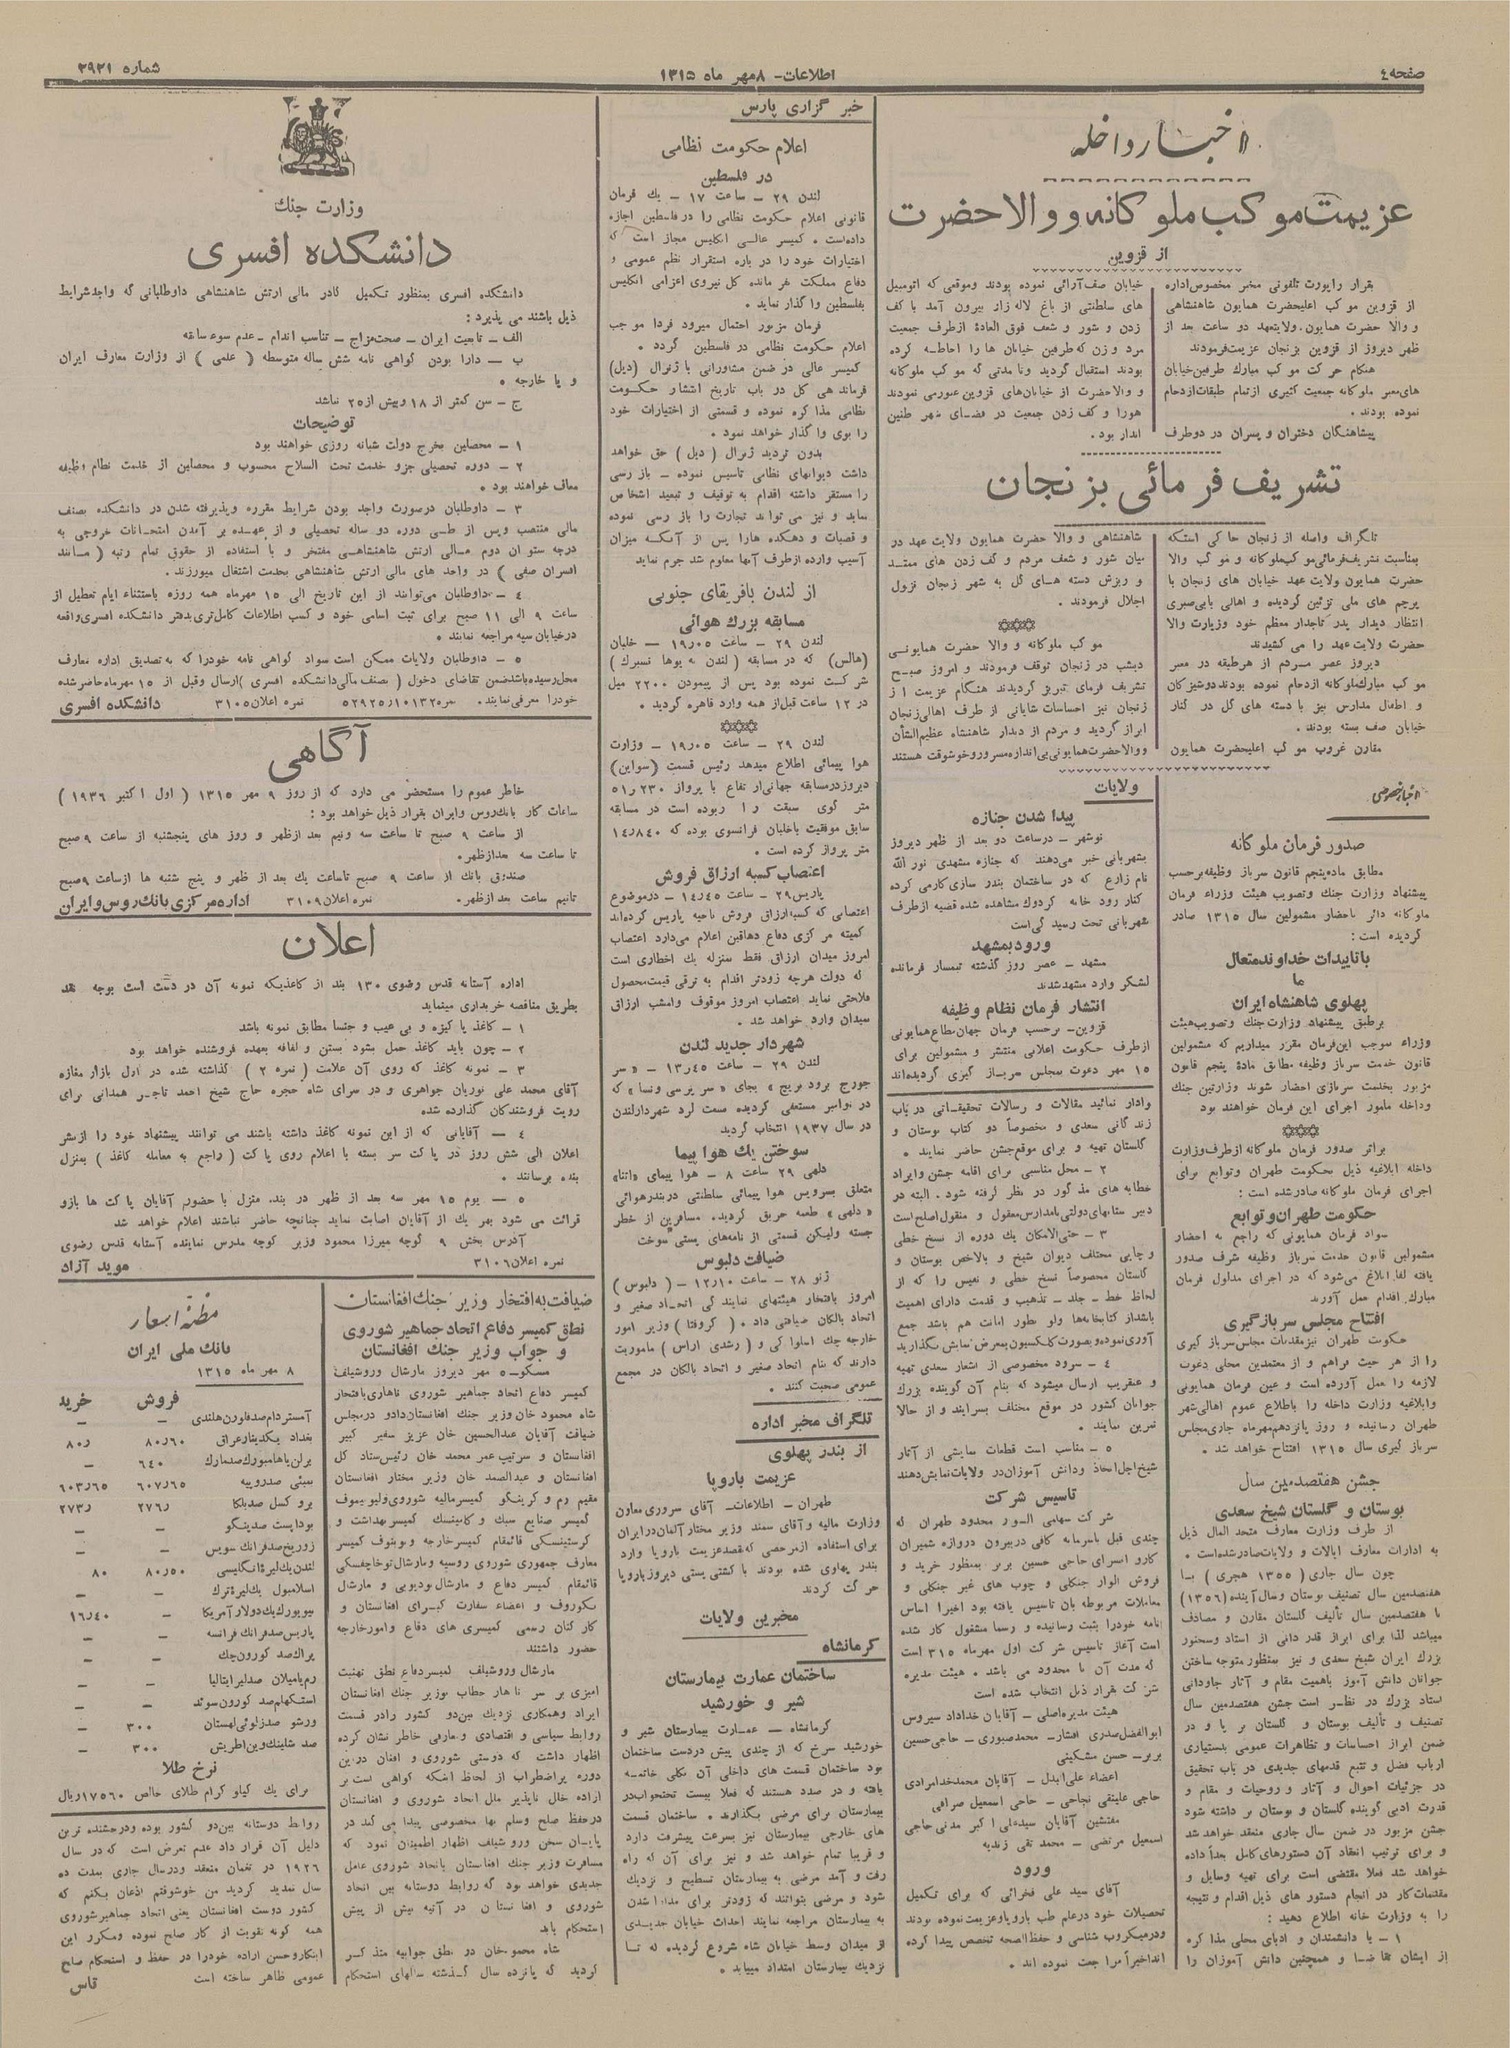 صفحه ٤
اطلاعات- ۸ مهر ماه ۱۳۱۵
شماره ۲۹۲۱
اخبار داخله
عزیمت موکب ملوکانه و والاحضرت
از قزوین
بقرار راپورت تلفونی مخبر مخصوص اداره
از قزوین موکب اعلیحضرت همایون شاهنشاهی
و والا حضرت همایون. ولایتعهد دو ساعت بعد از
ظهر دیروز از قزوین بزنجان عزیمت فرمودند
هنگام حرکت موکب مبارک طرفین خیابان
های معبر ملوکانه جمعیت کثیری از تمام طبقات ازدحام
نموده بودند.
پیشاهنگان دختران و پسران در دوطرف
خیابان صف آرائی نموده بودند وموقعی که اتومبیل
های سلطنتی از باغ لاله زار بیرون آمد با کف
زدن و شور و شعف فوق العادهٔ ازطرف جمعیت
مرد و زن که طرفین خیابان ها را احاطه کرده
بودند استقبال گردید وتا مدتی که موکب ملوکانه
و والاحضرت از خیابان‌های قزوین عبور می نمودند
هورا و کف زدن جمعیت در فضای شهر طنین
انداز بود.
تشریف فرمائی بزنجان
تلگراف واصله از زنجان حاکی است که
بمناسبت تشریف فرمائی موکب ملوکانه و موکب والا
حضرت همایون ولایت عهد خیابان های زنجان با
پرچم های ملی تزئین گردیده و اهالی بابی صبری
انتظار دیدار پدر تاجدار معظم خود وزیارت والا
حضرت ولایت عهد را می کشیدند
دیروز عصر مردم از هرطبقه در معبر
موکب مبارک ملوکانه ازدحام نموده بودند دوشیزگان
و اطفال مدارس نیز با دسته های گل در کنار
خیابان صف بسته بودند.
مقارن غروب موکب اعلیحضرت همایون
شاهنشاهی و والا حضرت همایون ولایت عهد در
میان شور و شعف مردم و کف زدن های ممتد
و ریزش دسته های گل به شهر زنجان نزول
اجلال فرمودند.
موکب ملوکانه و والا حضرت همایونی
دیشب در زنجان توقف فرمودند و امروز صبح
تشریف فرمای تبریز گردیدند هنگام عزیمت از
زنجان نیز احساسات شایانی از طرف اهالی زنجان
ابراز گردید و مردم از دیدار شاهنشاه عظیم الشأن
و والاحضرت همایونی بی اندازه مسرور وخوشوقت هستند
اخبار خصوصی
صدور فرمان ملوکانه
مطابق ماده پنجم قانون سرباز وظیفه برحسب
پیشنهاد وزارت جنگ وتصویب هیئت وزراء فرمان
ملوکانه دائر باحضار مشمولین سال ۱۳۱۵ صادر
گردیده است:
با تاییدات خداوند متعال
ما
پهلوی شاهنشاه ایران
برطبق پیشنهاد وزارت جنگ وتصویب هیئت
وزراء بموجب این فرمان مقرر میداریم که مشمولین
قانون خدمت سرباز وظیفه مطابق مادۀ پنجم قانون
مزبور بخدمت سربازی احضار شوند وزارتین جنگ
وداخله مامور اجرای این فرمان خواهند بود
براثر صدور فرمان ملوکانه ازطرف وزارت
داخله ابلاغیه ذیل بحکومت طهران وتوابع برای
اجرای فرمان ملوکانه صادر شده است:
حکومت طهران و توابع
سواد فرمان همایونی که راجع به احضار
مشمولین قانون خدمت سرباز وظیفه شرف صدور
یافته لفا ابلاغ می‌شود که در اجرای مدلول فرمان
مبارک اقدام بعمل آورند
افتتاح مجلس سربازگیری
حکومت طهران نیز مقدمات مجلس سرباز گیری
را از هر حیث فراهم و از معتمدین محلی دعوت
لازمه را بعمل آورده است و عین فرمان همایونی
وابلاغیه وزارت داخله را باطلاع عموم اهالی شهر
طهران رسانیده و روز پانزدهم مهرماه جاری مجلس
سرباز گیری سال ۱۳۱۵ افتتاح خواهد شد.
جشن هفتصدمین سال
بوستان و گلستان شیخ سعدی
از طرف وزارت معارف متحد المال ذیل
به ادارات معارف ایالات و ولایات صادر شده است.
چون سال جاری (۱۳۵۵ هجری) با
هفتصدمین سال تصنیف بوستان وسال آینده (۱۳۵٦)
با هفتصدمین سال تألیف گلستان مقارن و مصادف
میباشد لذا برای ابراز قدر دانی از استاد وسخنور
بزرگ ایران شیخ سعدی و نیز بمنظور متوجه ساختن
جوانان دانش آموز باهمیت مقام و آثار جاودانی
استاد بزرگ در نظر است جشن هفتصدمین سال
تصنیف و تألیف بوستان و گلستان بر پا و در
ضمن ابراز احساسات و تظاهرات عمومی بدستیاری
ارباب فضل و تتبع قدمهای جدیدی در باب تحقیق
در جزئیات احوال و آثار و روحیات و مقام و
قدرت ادبی گوینده گلستان و بوستان بر داشته شود
جشن مزبور در ضمن سال جاری منعقد خواهد شد
و برای ترتیب انعقاد آن دستورهای کامل بعداً داده
خواهد شد فعلا مقتضی است برای تهیه وسایل و
مقدمات کار در انجام دستور های ذیل اقدام و نتیجه
را به وزارت خانه اطلاع دهید:
۱ – با دانشمندان و ادبای محلی مذاکره
از ایشان تقاضا و همچنین دانش آموزان را
ولایات
پیدا شدن جنازه
نوشهر – درساعت دو بعد از ظهر دیروز
بشهربانی خبر می‌دهند که جنازه مشهدی نور الله
نام زارع که در ساختمان بندر سازی کار می کرده
کنار رود خانه کردوک مشاهده شده قضیه ازطرف
شهربانی تحت رسیدگی است
ورود بمشهد
مشهد – عصر روز گذشته تیمسار فرمانده
لشگر وارد مشهد شدند
انتشار فرمان نظام وظیفه
قزوین- برحسب فرمان جهان مطاع همایونی
ازطرف حکومت اعلانی منتشر و مشمولین برای
۱۵ مهر دعوت بمجلس سرباز گیری گردیده‌اند
وادار نمائید مقالات و رسالات تحقیقاتی در باب
زندگانی سعدی و مخصوصاً دو کتاب بوستان و
گلستان تهیه و برای موقع جشن حاضر نمایند.
۲ – محل مناسبی برای اقامه جشن وایراد
خطابه های مذکور در نظر گرفته شود. البته در
دبیر ستانهای دولتی یا مدارس معقول و منقول اصلح است
۳ – حتی‌الامکان یک دوره از نسخ خطی
و چاپی مختلف دیوان شیخ و بالاخص بوستان و
گلستان مخصوصاً نسخ خطی و نفیس را که از
لحاظ خط – جلد – تذهیب و قدمت دارای اهمیت
باشد از کتابخانه‌ها ولو بطور امانت هم باشد جمع
آوری نموده و بصورت کلکسیون بمعرض نمایش بگذارید
٤ – سرود مخصوصی از اشعار سعدی تهیه
و عنقریب ارسال میشود که بنام آن گوینده بزرگ
جوانان کشور در موقع مختلف بسرایند و از حالا
تمرین نمایند.
۵ – مناسب است قطعات نمایشی از آثار
شیخ اجل اتخاذ ودانش آموزان در ولایات نمایش دهند
تاسیس شرکت
شرکت سهامی الـور محدود طهران که
چندی قبل باسرمایه کافی دربیرون دروازه شمیران
کارو انسرای حاجی حسین بربر بمنظور خرید و
فروش الوار جنگلی و چوب های غیر جنگلی و
معاملات مربوطه بآن تاسیس یافته بود اخیراً اساس
نامه خودرا بثبت رسانیده و رسما مشغول کار شده
است آغاز تاسیس شرکت اول مهرماه ۳۱۵ است
که مدت آن نا محدود می باشد. هیئت مدیره
شرکت بقرار ذیل انتخاب شده است
هیئت مدیره اصلی – آقایان خداداد سیروس
ابوالفضل صدری افشار- محمد صبوری – حاجی حسین
بربر – حسن مشکینی
اعضاء علی البدل – آقایان محمد خدامرادی
حاجی علینقی نجاحی – حاجی اسمعیل صرافی
مفتشین آقایان سید علی اکبر مدنی حاجی
اسمعیل مرتضی – محمد تقی زندیه
ورود
آقای سید علی فخرائی که برای تکمیل
تحصیلات خود درعلم طب باروپا وعزیمت نموده بودند
ودرمیکروب شناسی و حفظ الصحه تخصص پیدا کرده
اند اخیراً مراجعت نموده اند.
خبر گزاری پارس
اعلام حکومت نظامی
در فلسطین
لندن ۲۹ – ساعت ۱۷ – یک فرمان
قانونی اعلام حکومت نظامی را در فلسطین اجازه
داده است. کمیسر عالی انگلیس مجاز است که
اختیارات خود را در باره استقرار نظم عمومی و
دفاع مملکت بفرمانده کل نیروی اعزامی انگلیس
بفلسطین واگذار نماید.
فرمان مزبور احتمال میرود فردا موجب
اعلام حکومت نظامی در فلسطین گردد.
کمیسر عالی در ضمن مشاوراتی با ژنرال (دیل)
فرماندهی کل در باب تاریخ انتشار حکومت
نظامی مذاکره نموده و قسمتی از اختیارات خود
را بوی واگذار خواهد نمود.
بدون تردید ژنرال (دیل) حق خواهد
داشت دیوانهای نظامی تاسیس نموده – بازرسی
را مستقر داشته اقدام به توقیف و تبعید اشخاص
نماید و نیز می تواند تجارت را باز رسی نموده
و قصبات و دهکده هارا پس از آنکه میزان
آسیب وارده ازطرف آنها معلوم شد جرم نماید
از لندن بافریقای جنوبی
مسابقه بزرگ هوائی
لندن ۲۹ – ساعت ۱۹٫۰۵ – خلبان
(هالس) که در مسابقه (لندن به یوها نسبرک)
شرکت نموده بود پس از پیمودن ۲۲۰۰ میل
در ۱۲ ساعت قبل از همه وارد قاهره گردید.
لندن ۲۹ – ساعت ۱۹٫۰۵ – وزارت
هوا پیمائی اطلاع میدهد رئیس قسمت (سواین)
دیروز درمسابقه جهانی ارتفاع با پرواز ۱۵٫۲۳۰
متر گوی سبقت را ربوده است در مسابقه
سابق موفقیت باخلبان فرانسوی بوده که ۱٤٫۸٤۰
متر پرواز کرده است.
اعتصاب کسبه ارزاق فروش
پاریس ۲۹ – ساعت ۱٤٫٤۵ – درموضوع
اعتصابی که کسبه ارزاق فروش ناحیه پاریس کرده‌اند
کمیته مرکزی دفاع دهاقین اعلام می‌دارد اعتصاب
امروز میدان ارزاق فقط بمنزله یک اخطاری است
که دولت هرچه زودتر اقدام به ترقی قیمت محصول
فلاحتی نماید اعتصاب امروز موقوف وامشب ارزاق
بمیدان وارد خواهد شد.
شهردار جدید لندن
لندن ۲۹ – ساعت ۱۳٫٤۵ – «سر
جورج برود بریج» بجای «سر پرسی ونسا» که
در نوامبر مستعفی گردیده بسمت لرد شهردار لندن
در سال ۱۹۳۷ انتخاب گردید
سوختن یک هواپیما
دلهی ۲۹ ساعت ۸ – هوا پیمای «اتنا»
متعلق بسرویس هوا پیمائی سلطنتی دربندر هوائی
«دلهی» طعمه حریق گردید. مسافرین از خطر
جسته ولیکن قسمتی از نامه‌های پستی سوخت
ضیافت دلبوس
ژنو ۲۸ – ساعت ۱۲٫۱۰ – (دلبوس)
امروز بافتخار هیئتهای نمایندگی اتحاد صغیر و
اتحاد بالکان ضیافتی داد. (کروفتا) وزیر امور
خارجه چک اسلواکی و (رشدی اراس) ماموریت
دارند که بنام اتحاد صغیر و اتحاد بالکان در مجمع
عمومی صحبت کنند.
تلگراف مخبر اداره
از بندر پهلوی
عزیمت باروپا
طهران – اطلاعات- آقای سروری معاون
وزارت مالیه وآقای سمند وزیر مختار آلمان در ایران
برای استفاده ازمرخصی که بقصد عزیمت باروپا وارد
بندر پهلوی شده بودند با کشتی پستی دیروز باروپا
حرکت کردند
مخبرین ولایات
کرمانشاه
ساختمان عمارت بیمارستان
شیر و خورشید
کرمانشاه – عمارت بیمارستان شیر و
خورشید سرخ که از چندی پیش دردست ساختمان
بود ساختمان قسمت های داخلی آن بکلی خاتمه
یافته و در صدد هستند که فعلا بیست تختخواب در
بیمارستان برای مرضی بگذارند. ساختمان قسمت
های خارجی بیمارستان نیز بسرعت پیشرفت دارد
و قریبا تمام خواهد شد و نیز برای آن که راه
رفت و آمد مرضی به بیمارستان تسطیح و نزدیک
شود و مرضی بتوانند که زودتر برای مداوا شدن
به بیمارستان مراجعه نمایند احداث خیابان جدیدی
از میدان وسط خیابان شاه شروع گردیده. که تا
نزدیک بیمارستان امتداد مییابد.
وزارت جنگ
دانشکده افسری
دانشکده افسری بمنظور تکمیل کادر مالی ارتش شاهنشاهی داوطلبانی که واجد شرایط
ذیل باشند می پذیرد:
الف – تابعیت ایران – صحت مزاج – تناسب اندام – عدم سوء سابقه
ب – دارا بودن گواهی نامه شش ساله متوسطه (علمی) از وزارت معارف ایران
و یا خارجه.
ج – سن کمتر از ۱۸ وبیش از ۲۵ نباشد
توضیحات
۱ – محصلین بخرج دولت شبانه روزی خواهند بود
۲ – دوره تحصیلی جزو خدمت تحت السلاح محسوب و محصلین از خدمت نظام وظیفه
معاف خواهند بود.
۳ – داوطلبان درصورت واجد بودن شرایط مقرره وپذیرفته شدن در دانشکده بصنف
مالی منتصب وپس از طی دوره دو ساله تحصیلی و از عهده بر آمدن امتحانات خروجی به
درجه ستوان دوم مالی ارتش شاهنشاهی مفتخر و با استفاده از حقوق تمام رتبه (مانند
افسران صفی) در واحد های مالی ارتش شاهنشاهی بخدمت اشتغال میورزند.
٤ – داوطلبان می‌توانند از این تاریخ الی ۱۵ مهرماه همه روزه باستثناء ایام تعطیل از
ساعت ۹ الی ۱۱ صبح برای ثبت اسامی خود و کسب اطلاعات کامل‌تری بدفتر دانشکده افسری واقعه
درخیابان سپه مراجعه نمایند.
۵ – داوطلبان ولایات ممکن است سواد گواهی نامه خودرا که به تصدیق اداره معارف
محل رسیده باشد ضمن تقاضای دخول (بصنف مالی دانشکده افسری) ارسال وقبل از ۱۵ مهرماه حاضر شده
خودرا معرفی نمایند. نمره ۵۲۹۲۵٫۱۰۱۳۲ نمره اعلان ۳۱۰۵ دانشکده افسری
آگاهی
خاطر عموم را مستحضر می دارد که از روز ۹ مهر ۱۳۱۵ (اول اکتبر ۱۹۳٦)
ساعات کار بانک روس وایران بقرار ذیل خواهد بود:
از ساعت ۹ صبح تا ساعت سه ونیم بعد ازظهر و روز های پنجشنبه از ساعت ۹ صبح
تا ساعت سه بعدازظهر.
صندوق بانک از ساعت ۹ صبح تاساعت یک بعد از ظهر و پنج شنبه ها ازساعت ۹ صبح
تانیم ساعت بعد ازظهر. نمره اعلان ۳۱۰۹ اداره مرکزی بانک روس و ایران
اعلان
اداره آستانه قدس رضوی ۱۳۰ بند از کاغذیکه نمونه آن در دست است بوجه نقد
بطریق مناقصه خریداری مینماید
۱ – کاغذ پاکیزه و بی عیب و جنسا مطابق نمونه باشد
۲ – چون باید کاغذ حمل بشود بستن و لفافه بعهده فروشنده خواهد بود
۳ – نمونه کاغذ که روی آن علامت (نمره ۲) گذاشته شده در اول بازار مغازه
آقای محمد علی نوریان جواهری و در سرای شاه حجره حاج شیخ احمد تاجر همدانی برای
رویت فروشندگان گذارده شده
٤ – آقایانی که از این نمونه کاغذ داشته باشند می توانند پیشنهاد خود را ازنشر
اعلان الی شش روز در پاکت سر بسته با اعلام روی پاکت (راجع به معامله کاغذ) بمنزل
بنده برسانند.
۵ – یوم ۱۵ مهر سه بعد از ظهر در بند. منزل با حضور آقایان پاکت ها بازو
قرائت می شود بهر یک از آقایان اصابت نماید چنانچه حاضر نباشند اعلام خواهد شد
آدرس بخش ۹ کوچه میرزا محمود وزیر کوچه مدرس نماینده آستانه قدس رضوی
نمره اعلان ۳۱۰٦ موید آزاد
ضیافت به افتخار وزیر جنگ افغانستان
نطق کمیسر دفاع اتحاد جماهیر شوروی
و جواب وزیر جنگ افغانستان
مسکو- ۵ مهر دیروز مارشال وروشیلف
کمیسر دفاع اتحاد جماهیر شوروی ناهاری بافتخار
شاه محمود خان وزیر جنگ افغانستان داد و درمجلس
ضیافت آقایان عبدالحسین خان عزیز سفیر کبیر
افغانستان و سرتیپ عمر محمد خان رئیس ستاد کل
افغانستان و عبدالصمد خان وزیر مختار افغانستان
مقیم رم و کرینکو کمیسر مالیه شوروی ولیوبیموف
کمیسر صنایع سبک و کامینسک کمیسر بهداشت و
کرستینسکی قائمقام کمیسر خارجه و بوبنوف کمیسر
معارف جمهوری شوروی روسیه و مارشال توخاچفسکی
قائمقام کمیسر دفاع و مارشال بودیونی و مارشال
یگوروف و اعضاء سفارت کبرای افغانستان و
کارکنان رسمی کمیسری های دفاع وامور خارجه
حضور داشتند
مارشال وروشیلف کمیسر دفاع نطق تهنیت
آمیزی بر سر ناهار خطاب بوزیر جنگ افغانستان
ایراد وهمکاری نزدیک بین دو کشور را در قسمت
روابط سیاسی و اقتصادی و معارفی خاطر نشان کرده
اظهار داشت که دوستی شوروی و افغان در این
دوره پراضطراب از لحاظ اینکه گواهی است بر
اراده خلل ناپذیر ملل اتحاد شوروی و افغانستان
درحفظ صلح وسلم بها مخصوصی پیدا می کند در
پایان سخن وروشیلف اظهار اطمینان نمود که
مسافرت وزیر جنگ افغانستان باتحاد شوروی عامل
جدیدی خواهد بود که روابط دوستانه بین اتحاد
شوروی و افغانستان در آتیه بیش از پیش
استحکام یابد
شاه محمود خان در نطق جوابیه متذکر
گردید که پانزده سال گذشته سالهای استحکام
مظنه اسعار
بانک ملی ایران
۸ مهر ماه ۱۳۱۵
فروش خرید
آمستردام صد فلورن هلندی – –
بغداد یکدینار عراق ۸۰٫٦۰ ۸۰٫
برلن یا هامبورک صد مارک ٦٤۰ –
بمبئی صد روپیه ٦۰۷٫٦۵ ٦۰۳٫٦۵
بروکسل صد بلگا ۲۷٦٫ ۲۷۳٫
بوداپست صد پنگو – –
زوریخ صد فرانک سویس – –
لندن یک لیرۀ انگلیسی ۸۰٫۵۰ ۸۰
اسلامبول یک لیرۀ ترک – –
نیویورک یک دولار آمریکا – ۱٦٫٤۰
پاریس صد فرانک فرانسه – –
پراگ صد کورون چک – –
رم یا میلان صد لیر ایتالیا – –
استکهلم صد کورون سوئد – –
ورشو صد زلوتی لهستان ۳۰۰ –
صد شلینک وین اطریش ۳۰۰ –
نرخ طلا
برای یک کیلو گرام طلای خالص ۱۷۵٦۰ ریال
روابط دوستانه بین دو کشور بوده ودرخشنده ترین
دلیل آن قرار داد عدم تعرض است که در سال
۱۹۲٦ در پغمان منعقد ودرسال جاری بمدت ده
سال تمدید گردید من خوشوقتم اذعان بکنم که
کشور دوست افغانستان یعنی اتحاد جماهیر شوروی
همه گونه تقویت از کار صلح نموده ومکرر این
ابتکار وحسن اراده خودرا در حفظ و استحکام صلح
عمومی ظاهر ساخته است تاس